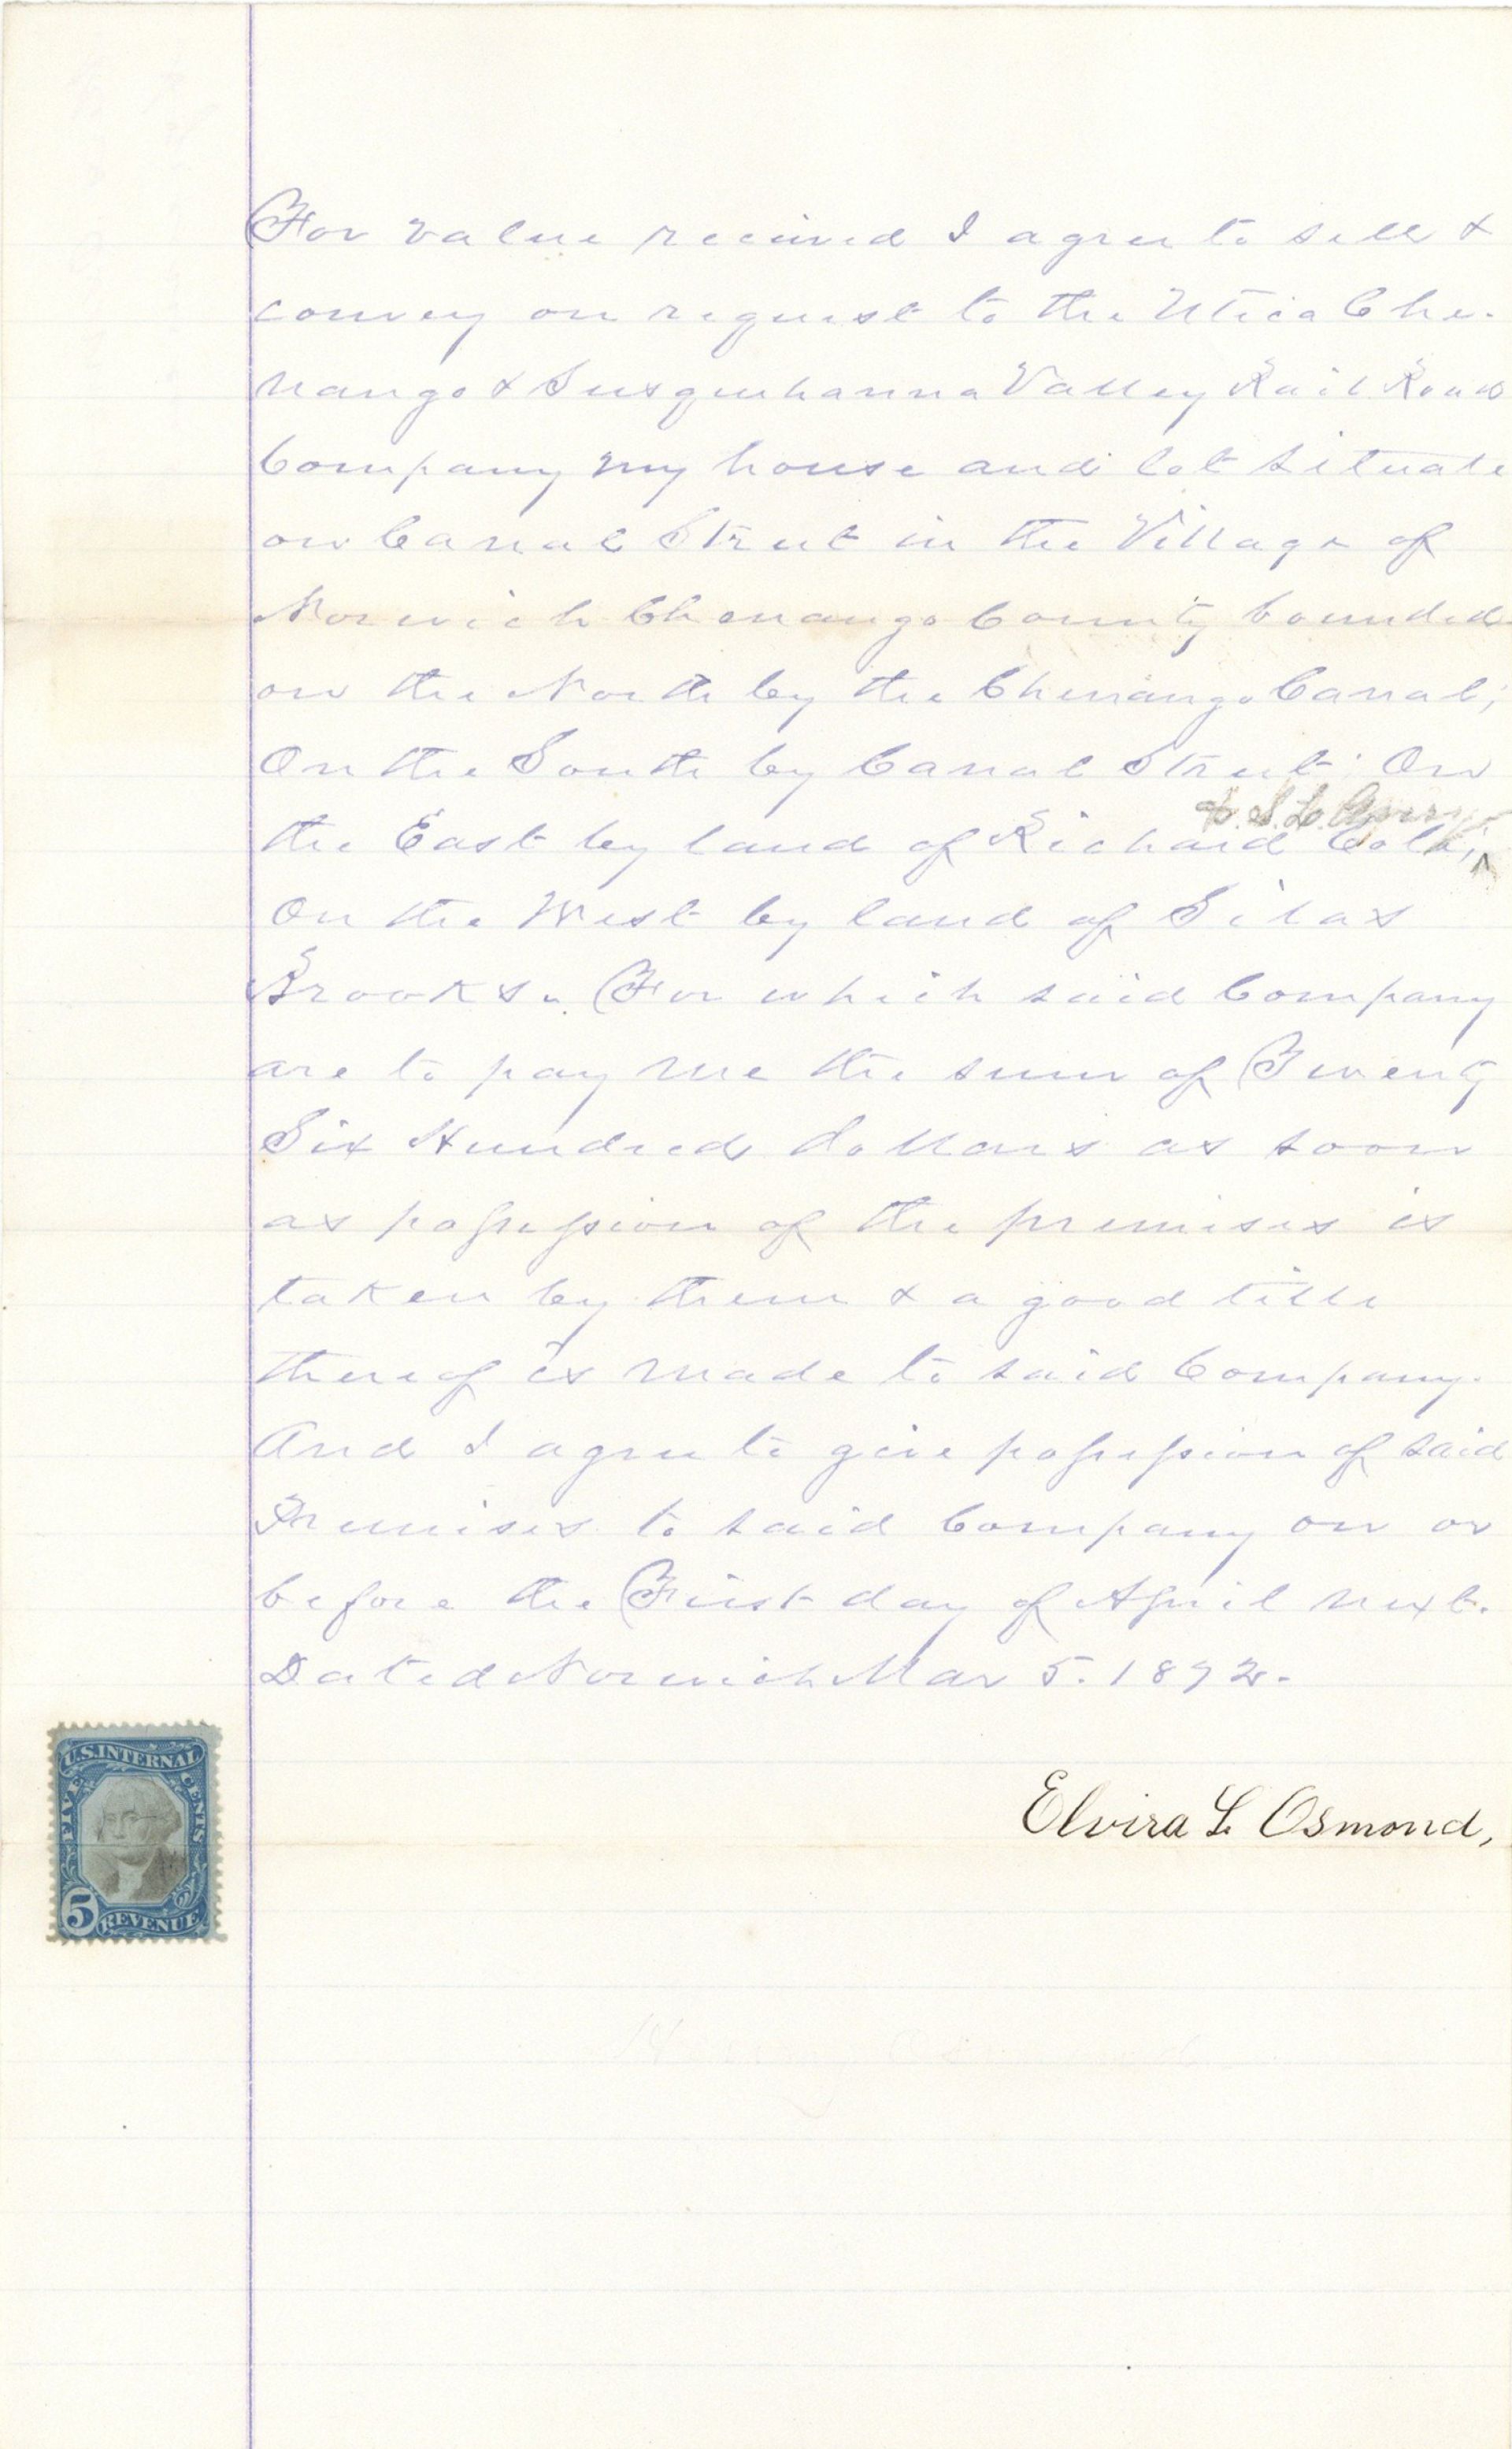 For value received I agree to sell &
convey on request to the Utica Che-
nango & Susquehanna Valley Rail Road
Company my house and lot situate
on Canal Street in the Village of
Norwich Chenango County bounded
on the North by the Chenango Canal;
On the South by Canal Street: On
& S. L.
the East by land of Richard Cole;
On the West by land of Silas
Brooks. For which said Company
are to pay me the sum of Twenty
Six Hundred dollars as soon
as possession of the premises is
taken by them & a good title
thereof is made to said Company.
And I agree to give possession of said
Premises to said Company on or
before the First day of April next.
Dated Norwich Mar 5. 1872.
Elvira L Osmond,
U.S. INTERNAL
FIVE CENTS
5 REVENUE